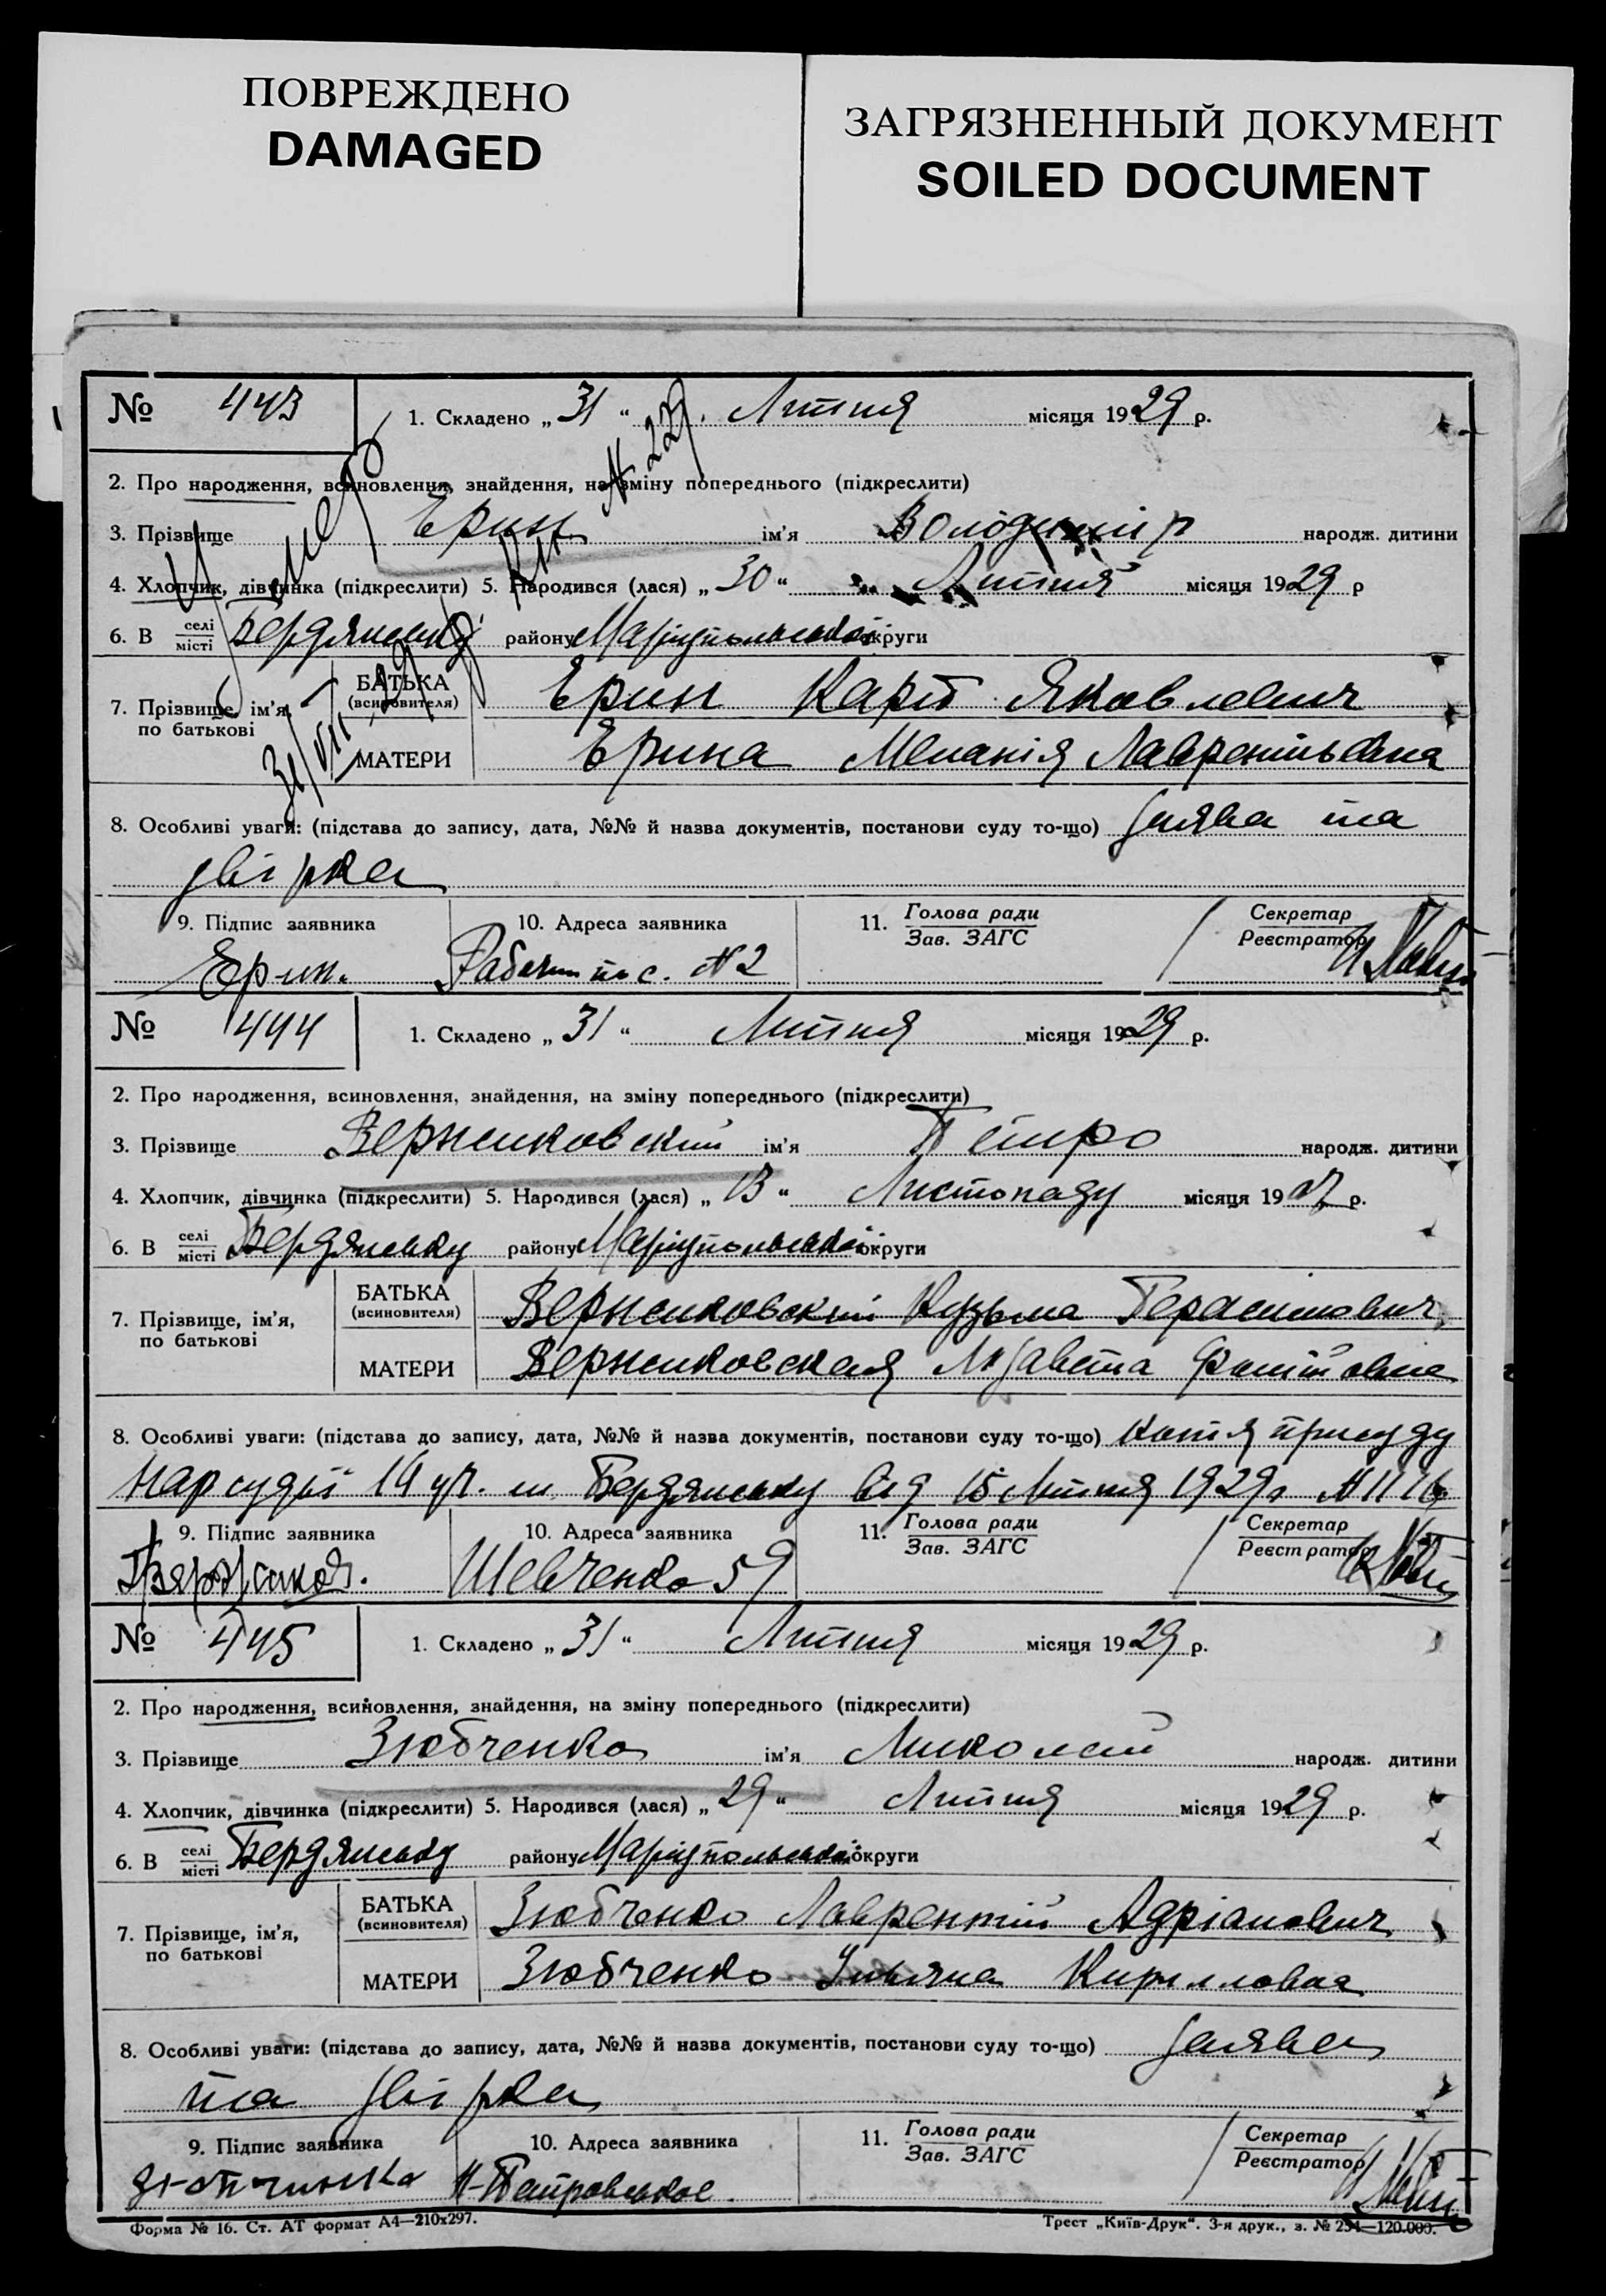 ПОВРЕЖДЕНО
DAMAGED
ЗАГРЯЗНЕННЫЙ ДОКУМЕНТ
SOILED DOCUMENT
№ 443
1. Складено „ 31 “ Липня місяця 1929 р.
2. Про народження, всиновлення, знайдення, на зміну попереднього (підкреслити)
3. Прізвище Ерин ім'я Володимір народж. дитини
4. Хлопчик, дівчинка (підкреслити) 5. Народився (лася) „ 30 “ Липня місяця 1929 р
6. В селі/місті Бердянську району Маріупольської округи
7. Прізвище, ім'я, по батькові
БАТЬКА (всиновителя) Ерин Карп Яковлевич
МАТЕРИ Ерина Меланія Лаврентьевна
8. Особливі уваги: (підстава до запису, дата, №№ й назва документів, постанови суду то-що) заява та
звірка
9. Підпис заявника 10. Адреса заявника 11. Голова ради / Зав. ЗАГС Секретар / Реєстратор
Ерин. №2
№ 444
1. Складено „ 31 “ Липня місяця 1929 р.
2. Про народження, всиновлення, знайдення, на зміну попереднього (підкреслити)
3. Прізвище ім'я Петро народж. дитини
4. Хлопчик, дівчинка (підкреслити) 5. Народився (лася) „ 13 “ Листопаду місяця 19 р.
6. В селі/місті Бердянську району Маріупольської округи
7. Прізвище, ім'я, по батькові
БАТЬКА (всиновителя) Кузьма Герасимович
МАТЕРИ Лизавета
8. Особливі уваги: (підстава до запису, дата, №№ й назва документів, постанови суду то-що) копія присуду
Нарсудії 14 уч. м. Бердянську від 15 Липня 1929 р
9. Підпис заявника 10. Адреса заявника 11. Голова ради / Зав. ЗАГС Секретар / Реєстратор
Шевченко 59
№ 445
1. Складено „ 31 “ Липня місяця 1929 р.
2. Про народження, всиновлення, знайдення, на зміну попереднього (підкреслити)
3. Прізвище Зюбченко ім'я Миколай народж. дитини
4. Хлопчик, дівчинка (підкреслити) 5. Народився (лася) „ 29 “ Липня місяця 1929 р.
6. В селі/місті Бердянську району Маріупольської округи
7. Прізвище, ім'я, по батькові
БАТЬКА (всиновителя) Зюбченко Лаврентій Адріанович
МАТЕРИ Зюбченко Ульяна Кирилловна
8. Особливі уваги: (підстава до запису, дата, №№ й назва документів, постанови суду то-що) заява
та звірка
9. Підпис заявника 10. Адреса заявника 11. Голова ради / Зав. ЗАГС Секретар / Реєстратор
Н-Петровське
Форма № 16. Ст. АТ формат А4—210х297.
Трест „Київ-Друк“. 3-я друк., з. № 254—120.000.